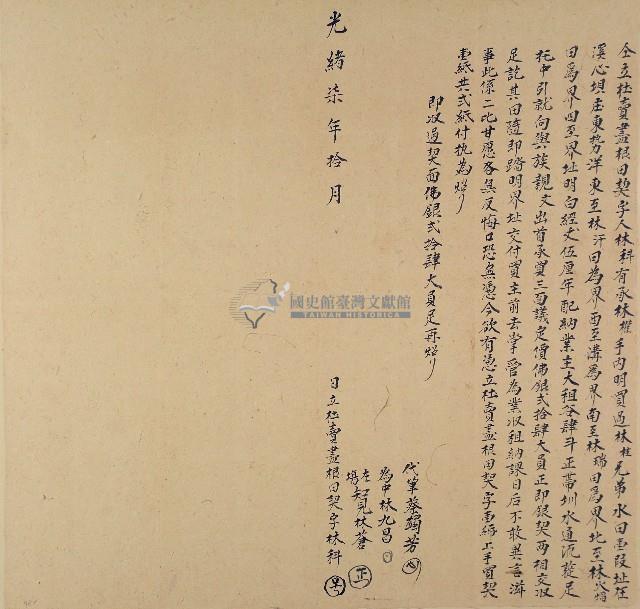 仝立杜賣盡根田契字人林科有承林權手内明買過林枉兄弟水田壹段址在
溪心垻庄東勢洋東至林汗田為界西至溝為界南至林瑞田為界北至林火焰
田為界四至界址明白經丈伍厘年配納業主大租谷肆斗正帶圳水通流蔭足
托中引就向與族親文出首承買三面議定價佛銀弍拾肆大員正即銀契兩相交收
足訖其田隨即踏明界址交付買主前去掌管為業收租納課日后不敢異言滋
事此係二比甘愿各無反悔口恐無憑今欲有憑立杜賣盡根田契字壹紙上手買契
壹紙共弍紙付执為炤
即收過契面佛銀弍拾肆大員足再炤
代筆蔡錫芳
為中林九昌
在塲知見林蒼
正
光緒柒年拾月
日立杜賣盡根田契字林科
國史館臺灣文獻館
TAIWAN HISTORICA